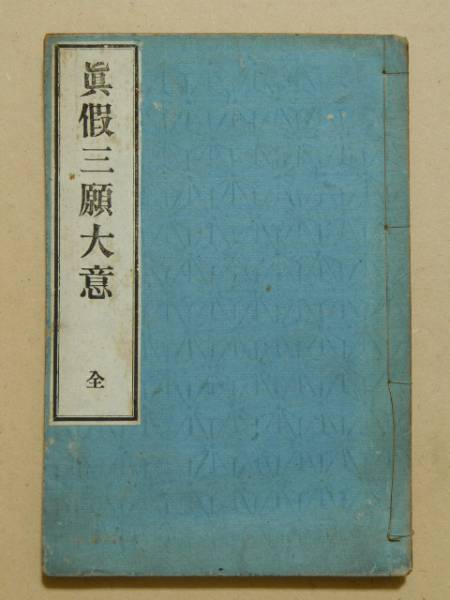 眞假三願大意
全